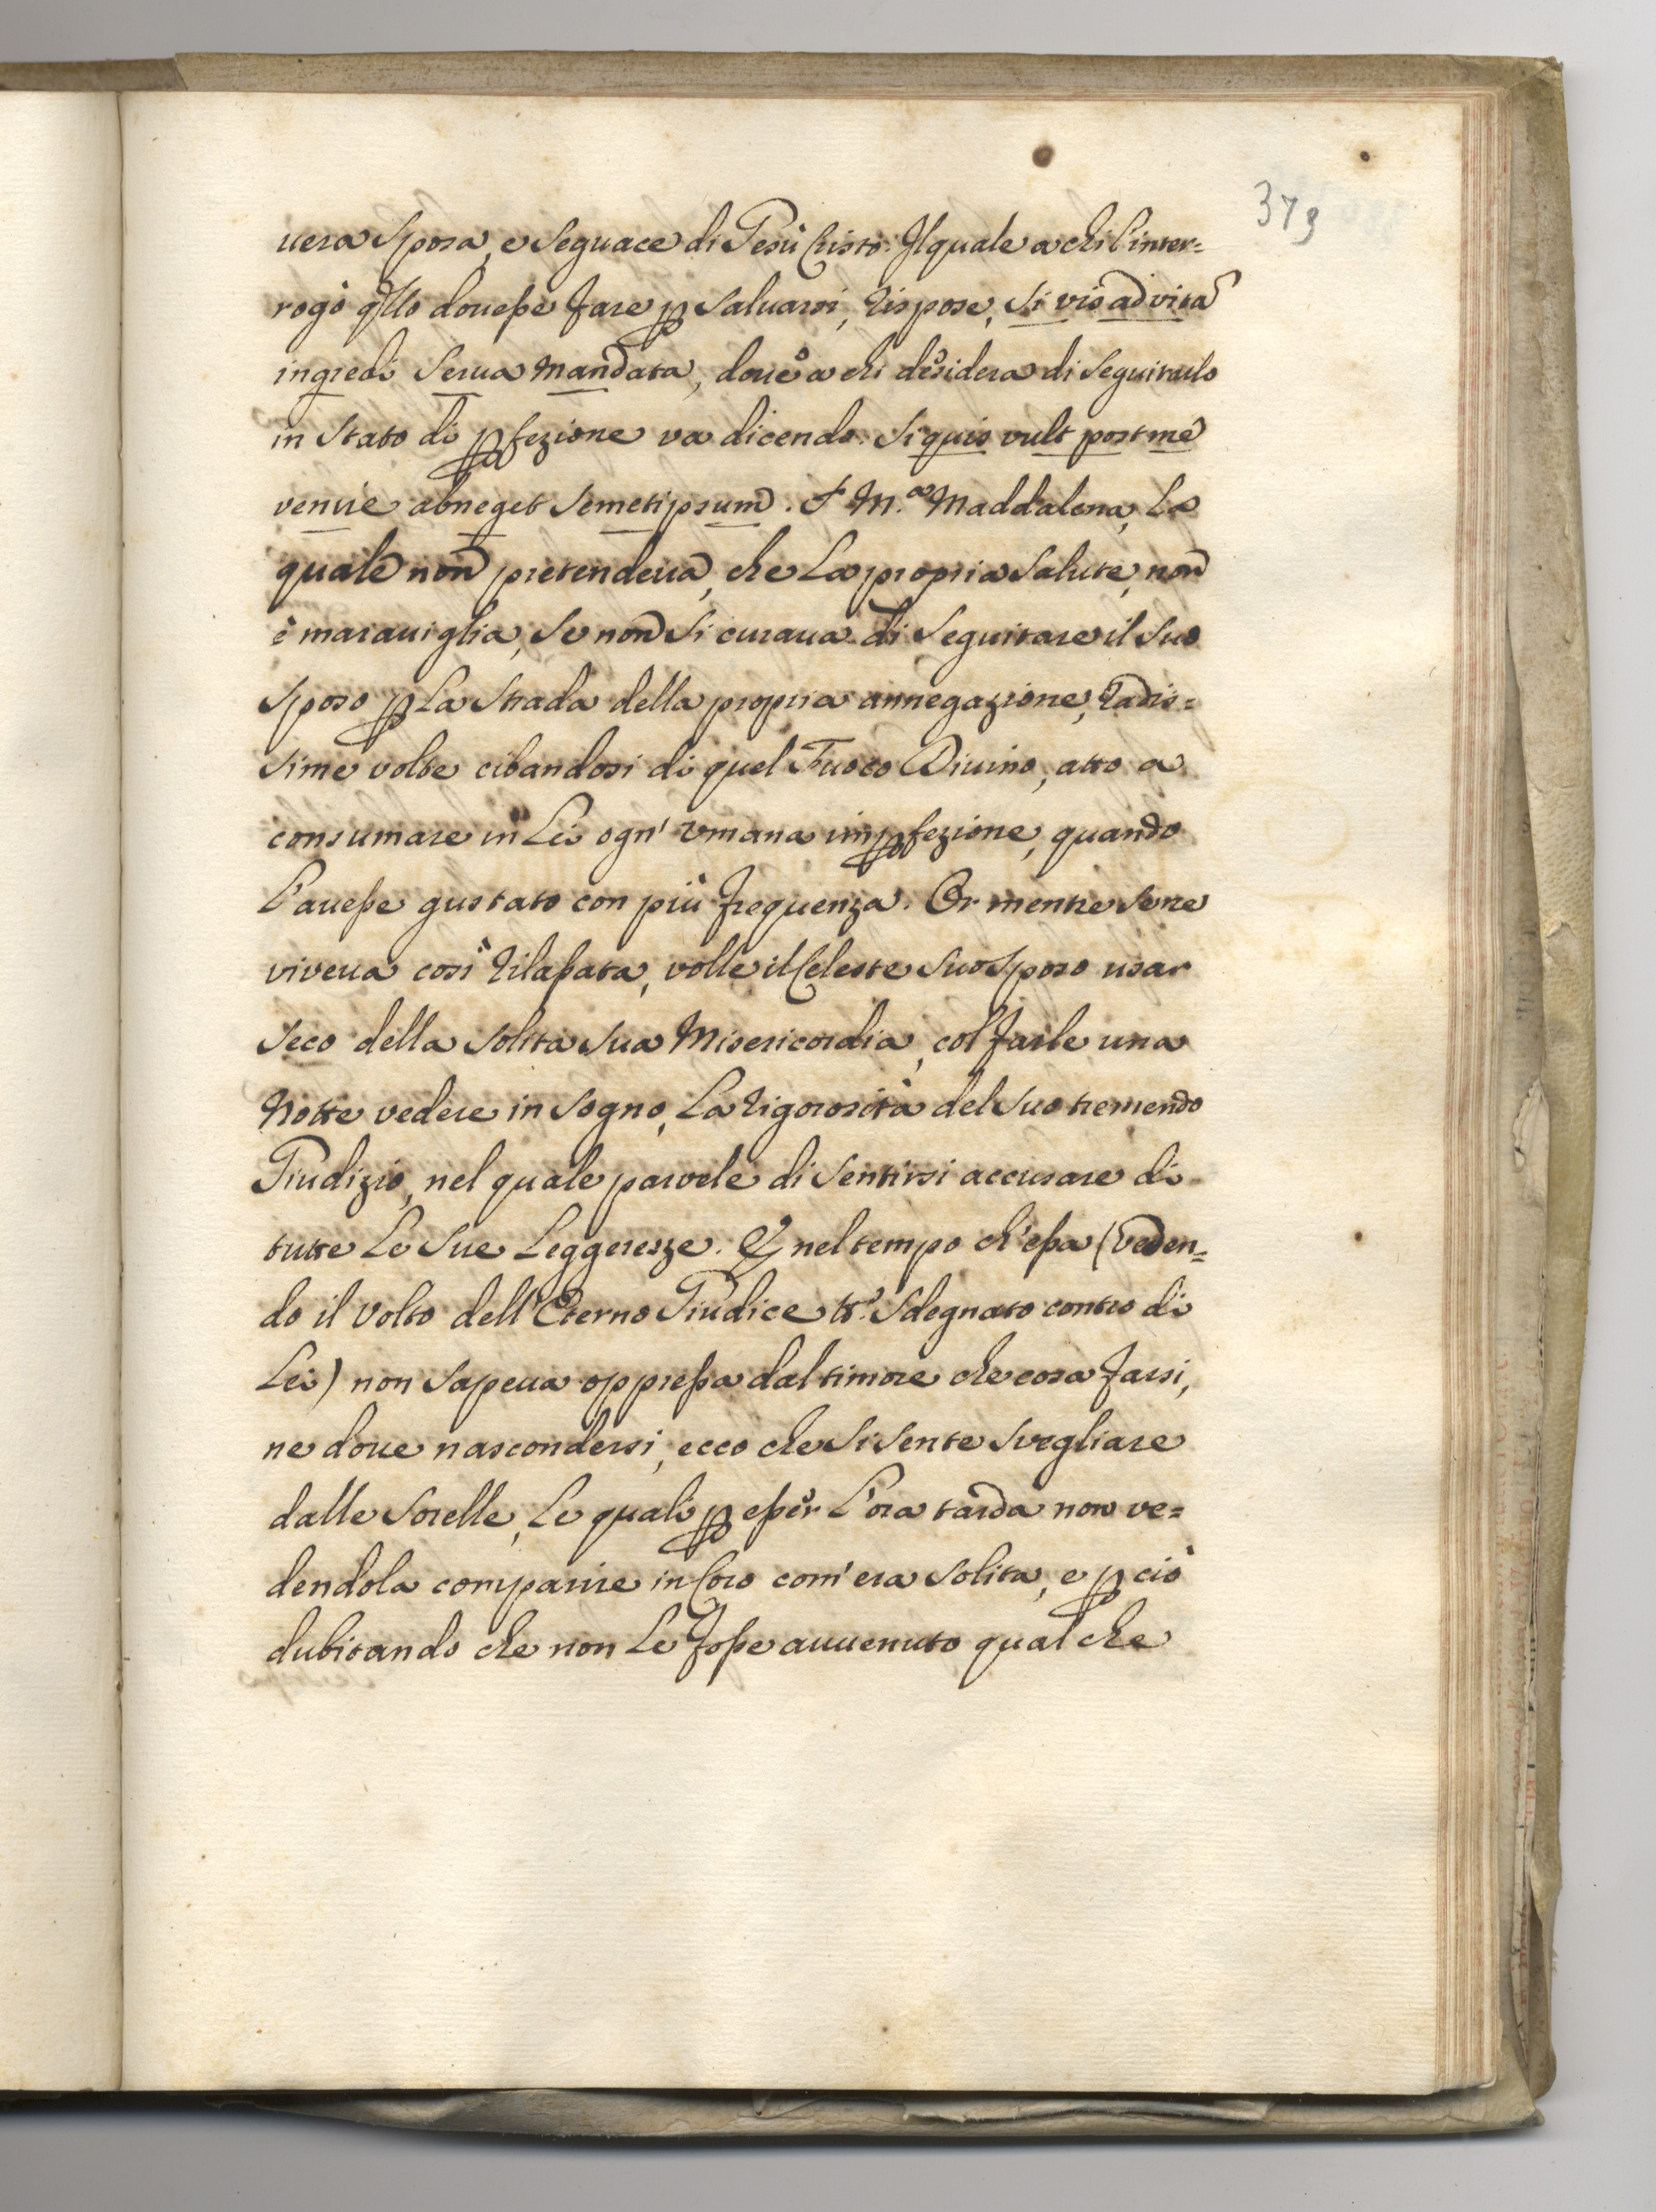 373
uera Sposa, e Seguace di Gesù Cristo. Il quale a chi l'inter=
rogò qllo douesse fare p Saluarsi, rispose, Si vis ad vitã
ingredi Serua Mandata, doue a chi desidera di Seguitarlo
in Stato di pfezione va dicendo. Si quis vult post me
venire abneget Semetipsum. S M.a Maddalena, La
quale non pretendeua, che La propria Salute, non
è marauiglia, Se non Si curaua di Seguitare il Suo
Sposo p La Strada della propria annegazione, radis=
sime volte cibandosi di quel Fuoco Diuino, atto a
consumare in Lei ogn' vmana impfezione, quando
L'auesse gustato con più frequenza. Or mentre Sene
viveua così rilassata, volle il Celeste Suo Sposo usar
Seco della Solita Sua Misericordia, col farle una
Notte vedere in Sogno, La rigorosità del Suo tremendo
Giudizio, nel quale parvele di Sentirsi accusare di
tutte Le Sue Leggerezze. E nel tempo ch'essa (veden=
do il Volto dell'Eterno Giudice tt.o Sdegnato contro di
Lei) non Sapeua oppressa dal timore che cosa farsi,
ne doue nascondersi, ecco che Si Sente Svegliare
dalle Sorelle, Le quali p esser L'ora tarda non ve=
dendola comparire in Coro com'era Solita, e p ciò
dubitando che non Le fosse auuenuto qualche